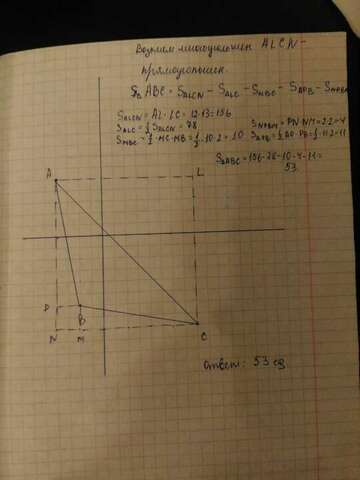 Возьмем многоугольник ALCN -
прямоугольник.
S_ABC = S_ALCN - S_ALC - S_MBC - S_APB - S_NPBM
S_ALCN = AL · LC = 12·13 = 156
S_ALC = 1/2 S_ALCN = 78
S_MBC = 1/2 · MC · MB = 1/2 · 10·2 = 10
S_NPBM = PN·NM = 2·2 = 4
S_APB = 1/2 AP·PB = 1/2 · 11·2 = 11
S_ABC = 156-78-10-4-11 =
53
A
L
D
B
N
M
C
ответ: 53 ед